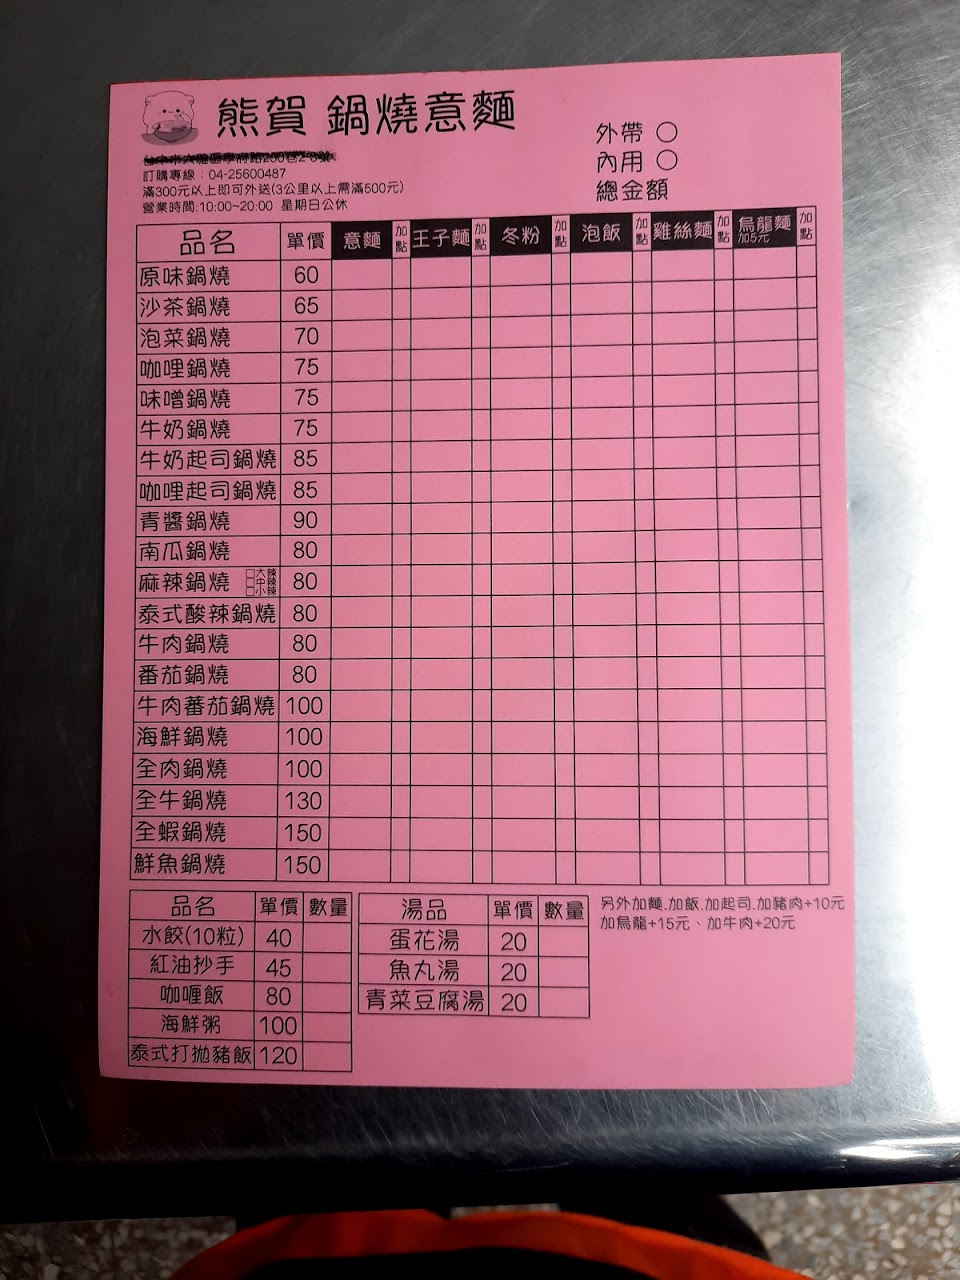 熊賀 鍋燒意麵
外帶 ○
內用 ○
總金額
訂購專線：04-25600487
滿300元以上即可外送(3公里以上需滿500元)
營業時間:10:00~20:00 星期日公休
品名 單價 意麵 加點 王子麵 加點 冬粉 加點 泡飯 加點 雞絲麵 加點 烏龍麵 加5元 加點
原味鍋燒 60
沙茶鍋燒 65
泡菜鍋燒 70
咖哩鍋燒 75
味噌鍋燒 75
牛奶鍋燒 75
牛奶起司鍋燒 85
咖哩起司鍋燒 85
青醬鍋燒 90
南瓜鍋燒 80
麻辣鍋燒 □大辣 □中辣 □小辣 80
泰式酸辣鍋燒 80
牛肉鍋燒 80
番茄鍋燒 80
牛肉蕃茄鍋燒 100
海鮮鍋燒 100
全肉鍋燒 100
全牛鍋燒 130
全蝦鍋燒 150
鮮魚鍋燒 150
品名 單價 數量
水餃(10粒) 40
紅油抄手 45
咖喱飯 80
海鮮粥 100
泰式打拋豬飯 120
湯品 單價 數量
蛋花湯 20
魚丸湯 20
青菜豆腐湯 20
另外加麵.加飯.加起司.加豬肉+10元
加烏龍+15元、加牛肉+20元